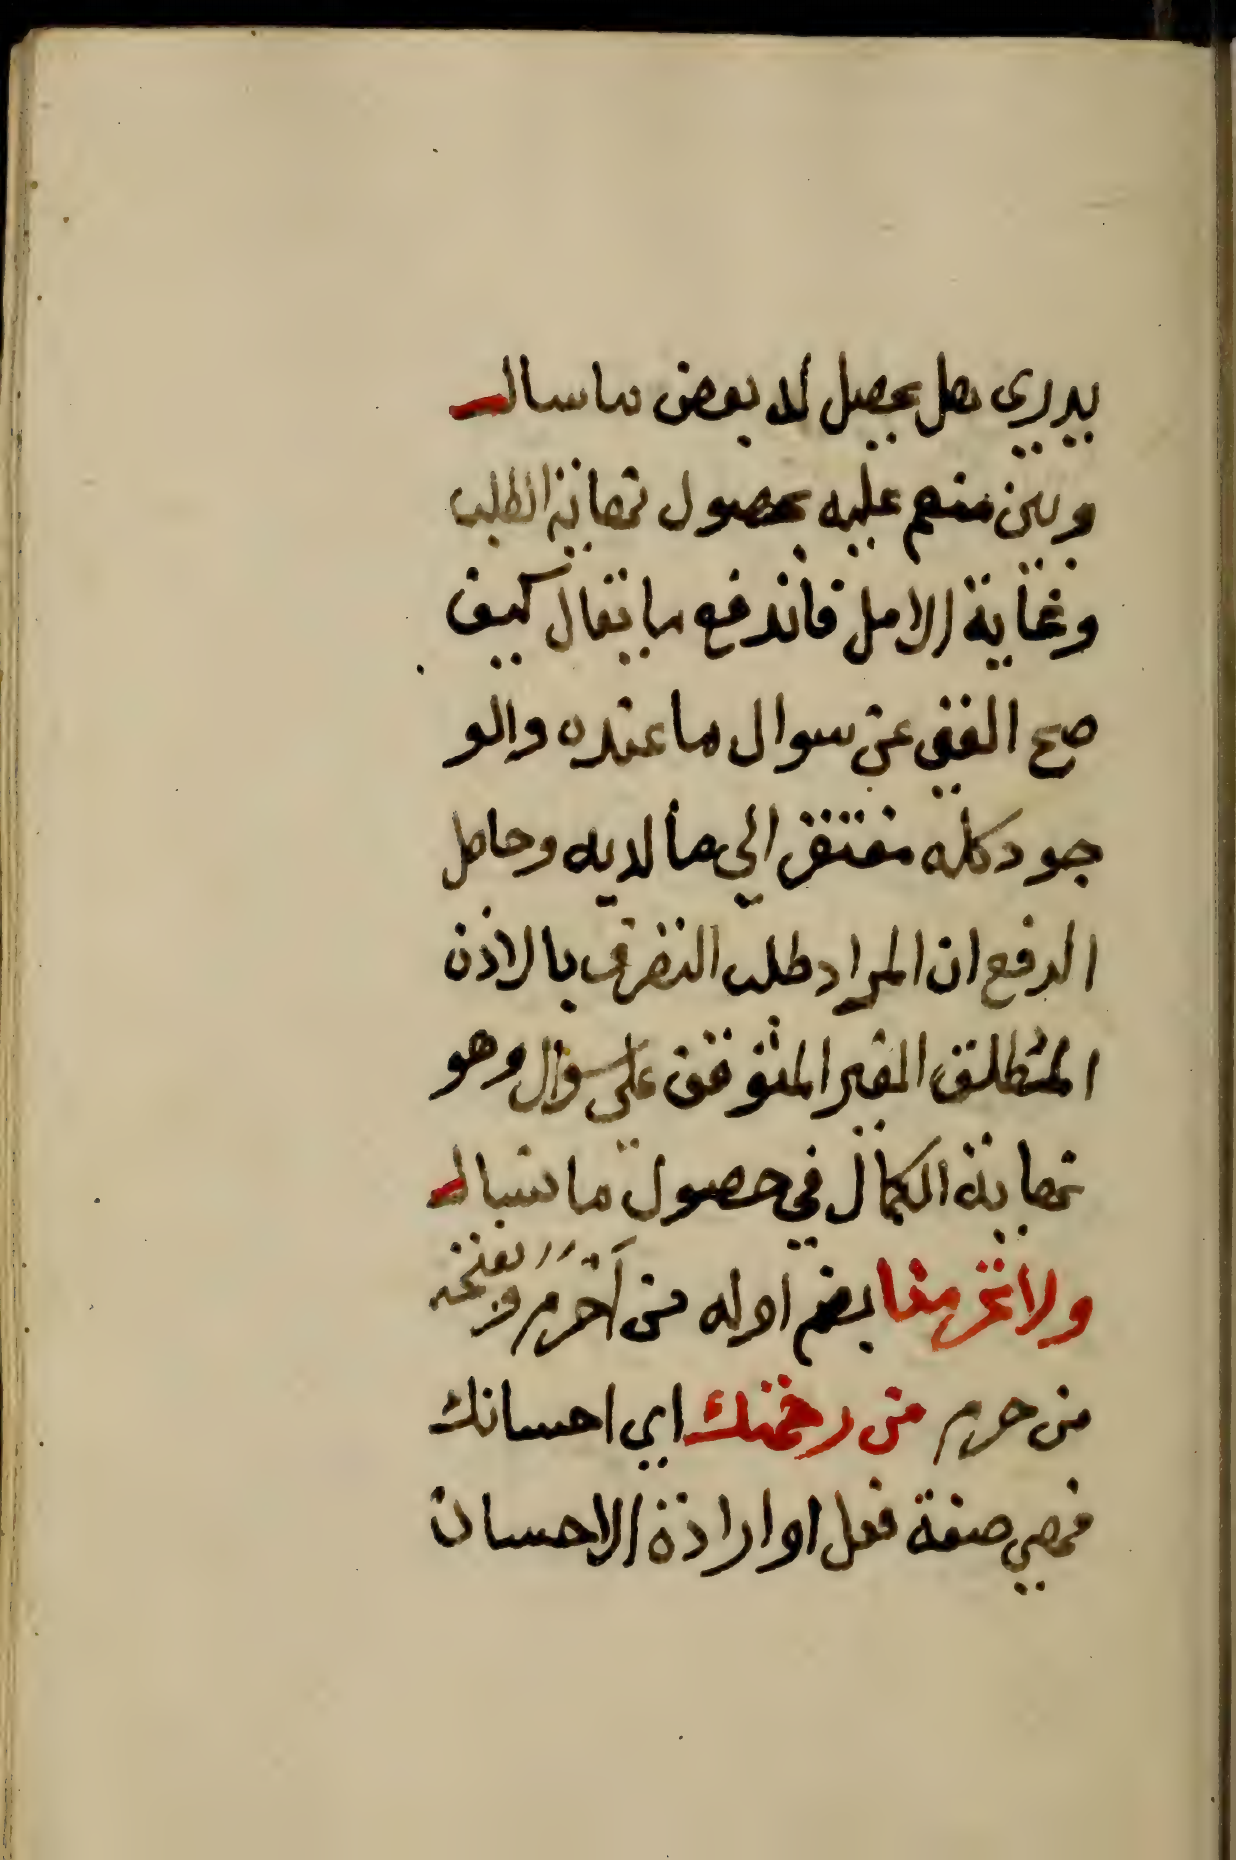 يدري هل يحصل له بعض ما سال
وبين منعم عليه بحصول نهاية الطلب
وغاية الامل فاندفع ما يقال كيف
صح الغنى عن سوال ما عنده والو
جود كله مفتقر الي ما لديه وحاصل
الدفع ان المراد طلب التصرف بالاذن
المطلق الغير المتوقف علي سوال وهو
نهاية الكمال في حصول ما سال
ولا تحرمنا بضم اوله من أحرم وبفتحه
من حرم من رحمتك اي احسانك
فهي صفة فعل او ارادة الاحسان